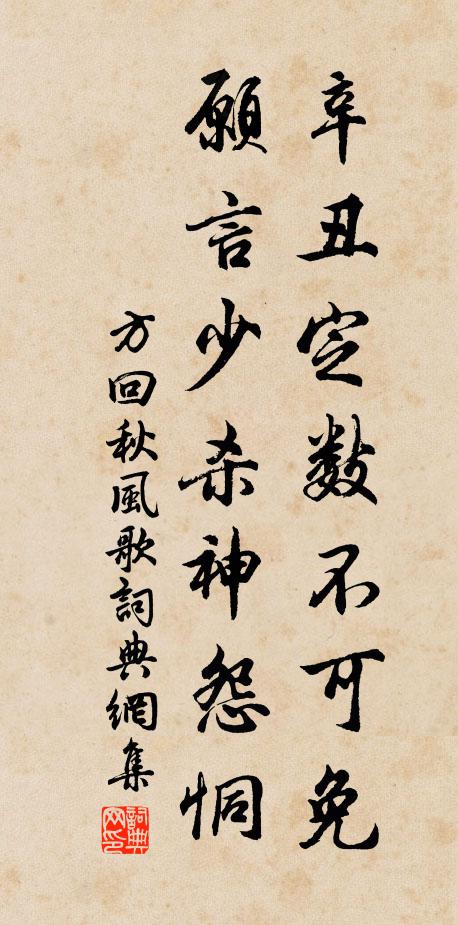 辛丑定数不可免
願言少杀神怨恫
方回秋風歌詞典網集
詞典网印